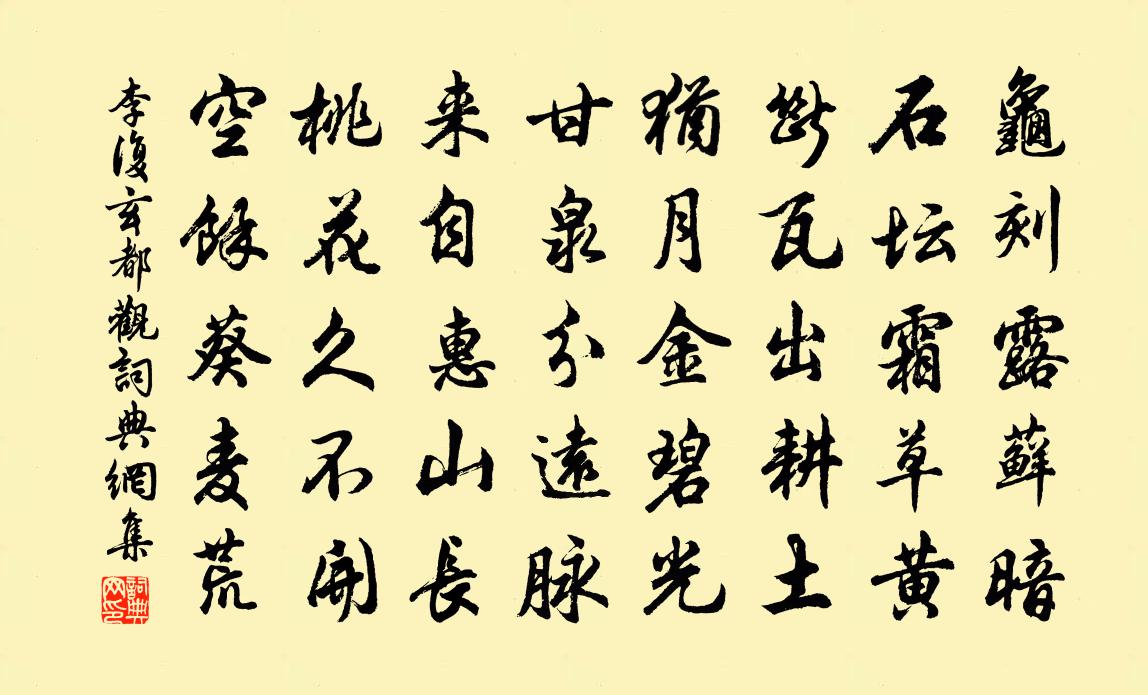 龜刻露蘚暗
石坛霜草黄
斷瓦出耕土
猶月金碧光
甘泉分遠脉
来自惠山長
桃花久不開
空餘葵麦荒
李復玄都觀詞典網集
詞典网印